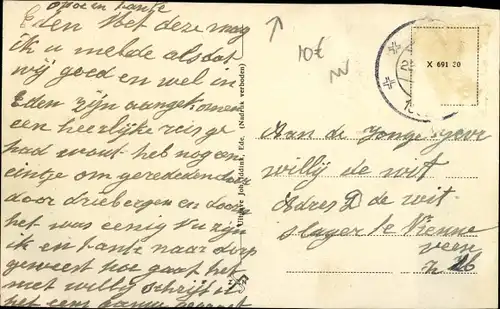 opoe en tante
Eden Met deze mag
ik u melde als dat
wij goed en wel in
Eden zijn aangekomen
een heerlijke reis ge
had want heb nog een
eintje om gerededen door
door driebergen en doorn
het was eenig Nu zijn
ik en tante naar dorp
geweest hoe gaat het
met willy schrijft
het een
10€
X 691 20
Uitgave Job. Iddink, Ede. (Nadruk verboden)
Aan de Jonge Heer
willij de wit
Adres D de wit
slager te Vreene
veen